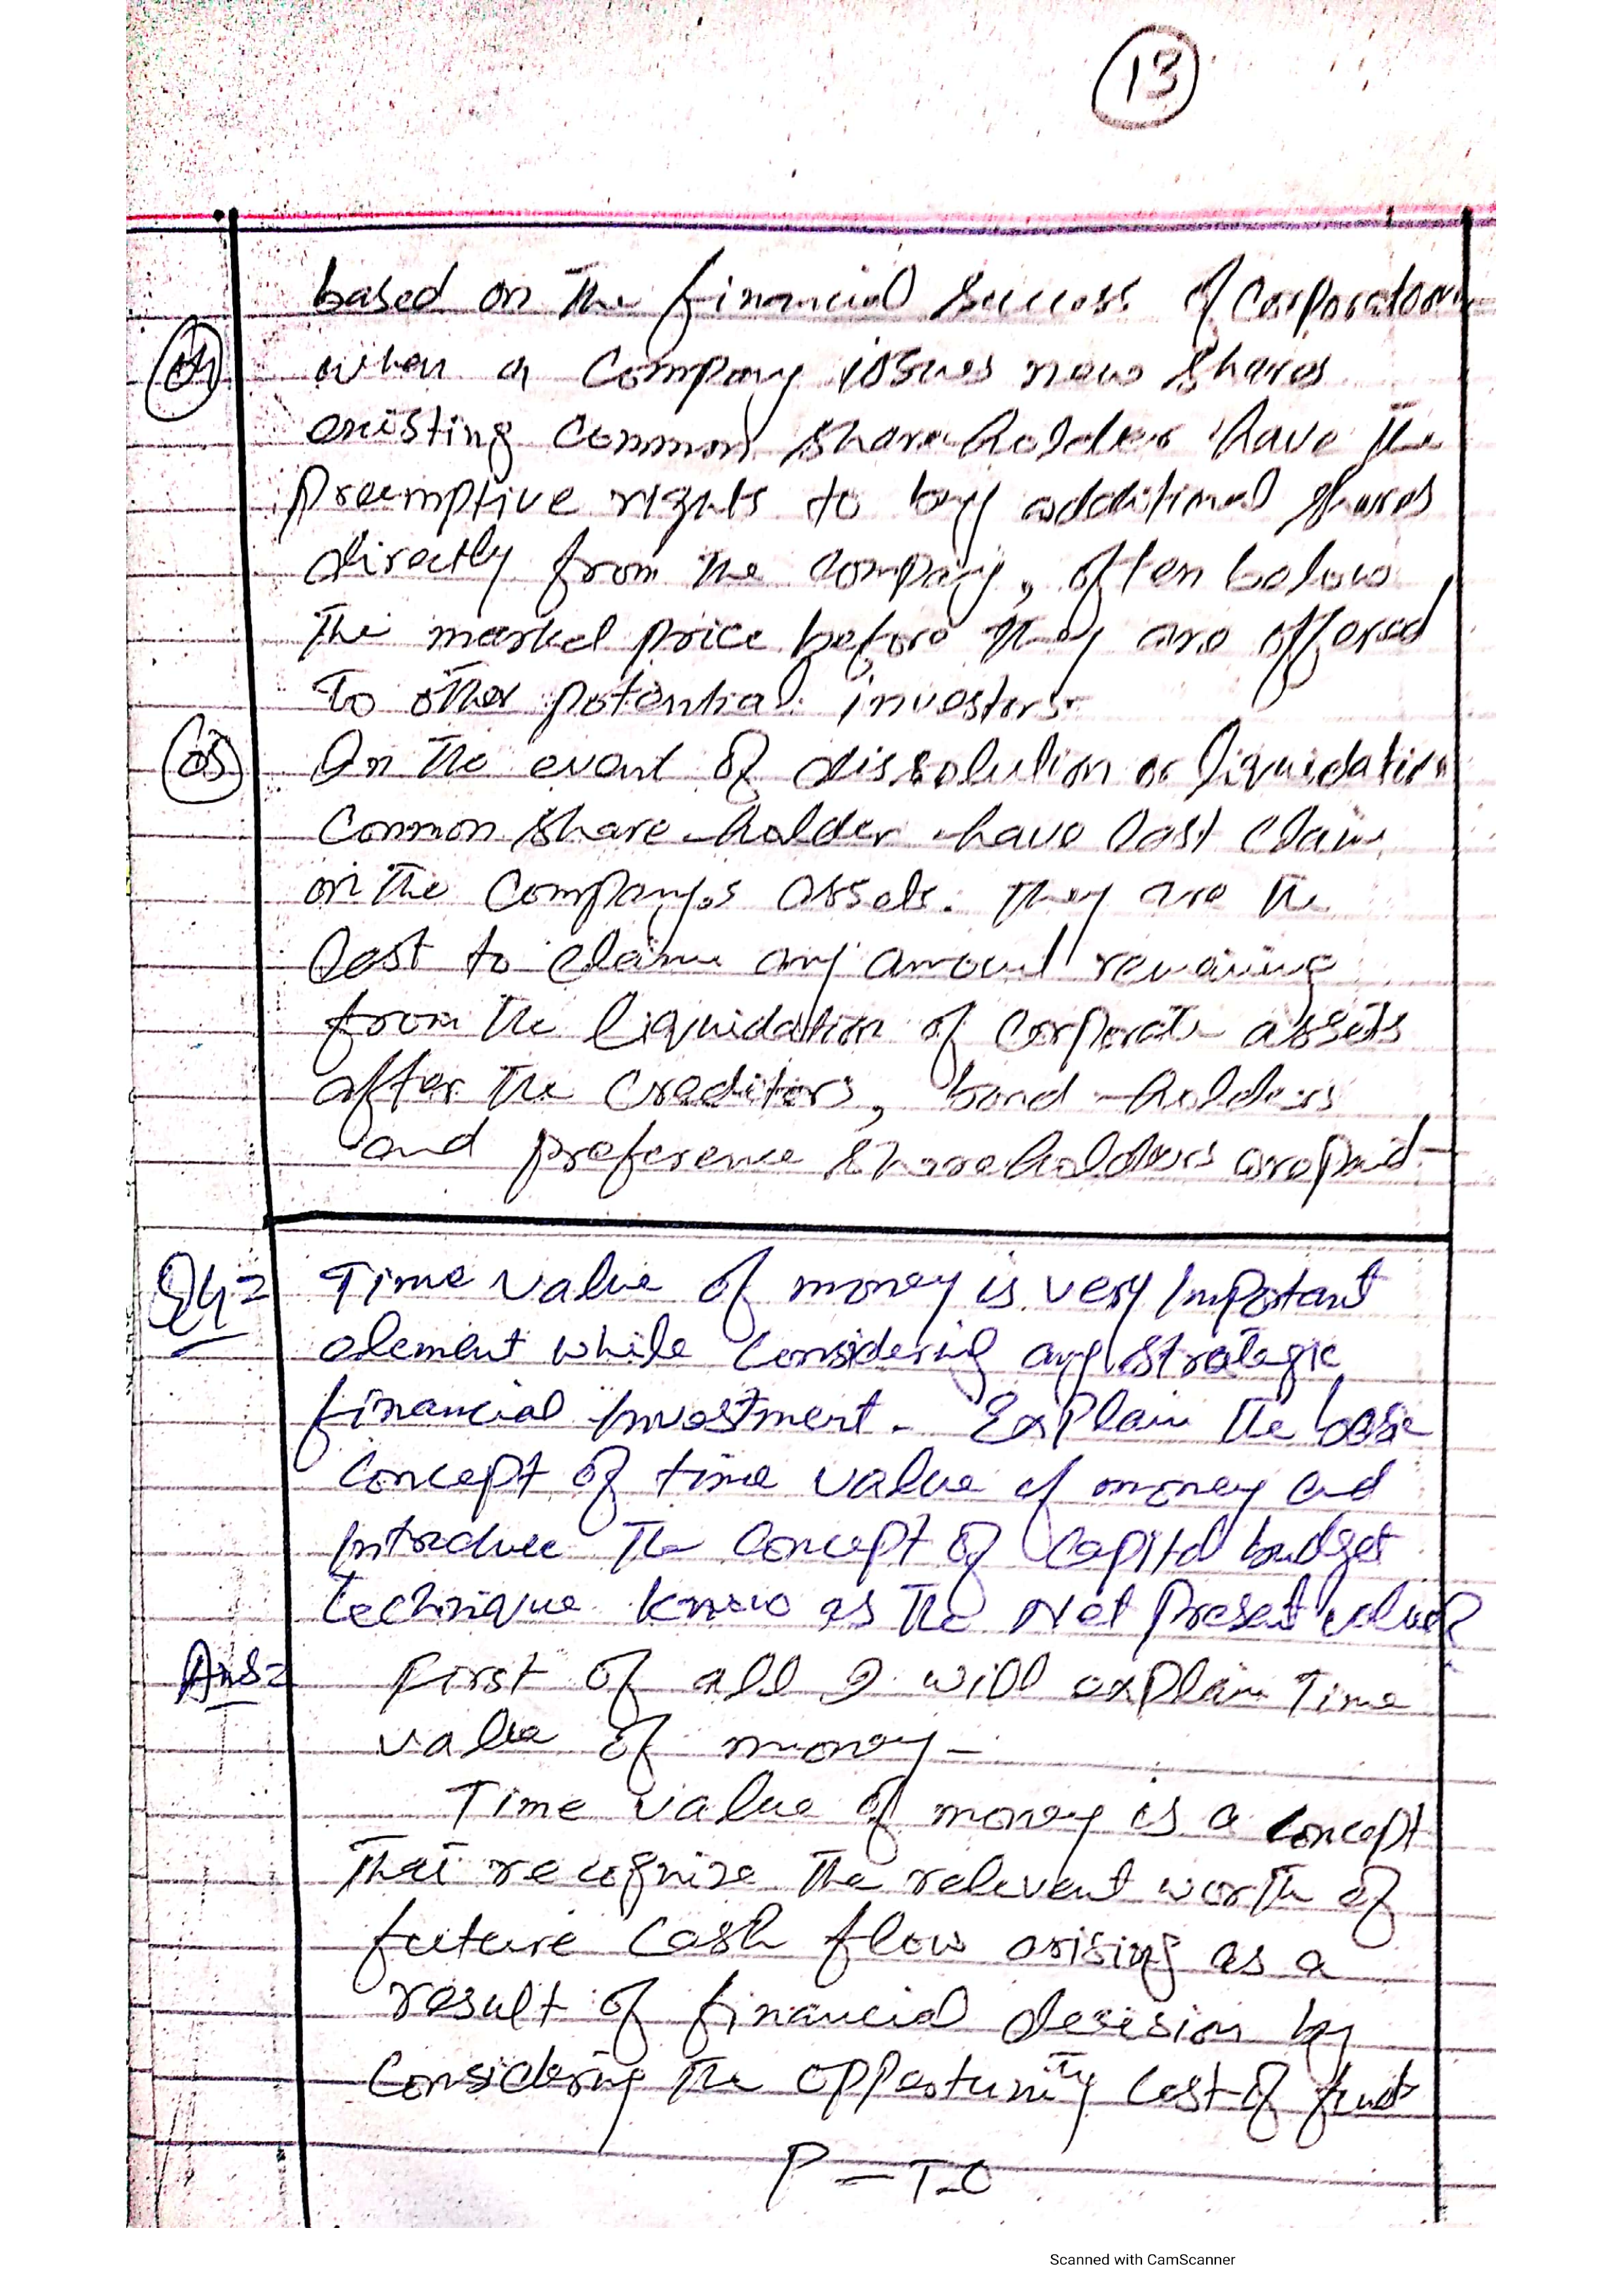 13
based on the financial success of corporation
04 when a company issues new shares
existing common share-holder have the
preemptive rights to buy additional shares
directly from the company, often below
the market price before they are offered
To other potential investors.
05 In the event of dissolution or liquidation
Common share-holder have last claim
on the company's assets. They are the
last to claim any amount remaining
from the liquidation of corporate assets
after the creditors, bond-holders
and preference shareholders are paid-
Q4= Time value of money is very Important
element while considering any strategic
financial investment. Explain the basic
concept of time value of money and
introduce The concept of capital budget
technique know as the Net Present value?
Ans= First of all I will explain Time
value of money-
Time value of money is a concept
That recognize the relevent worth of
future cash flow arising as a
result of financial decision by
considering the opportunity cost of fund
P-T.O
Scanned with CamScanner